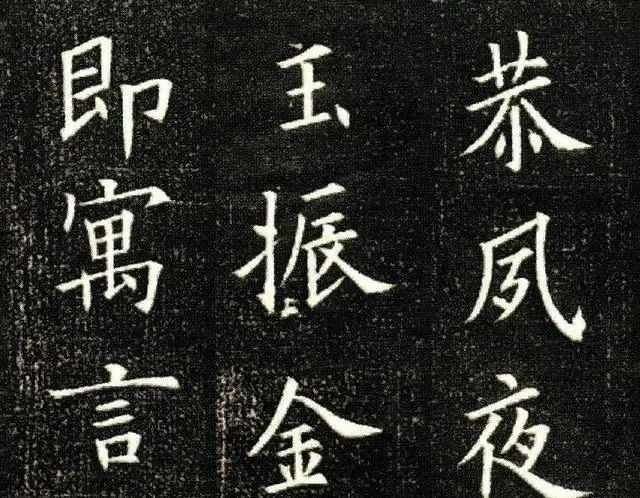 恭夙夜
玉振金
即寓言